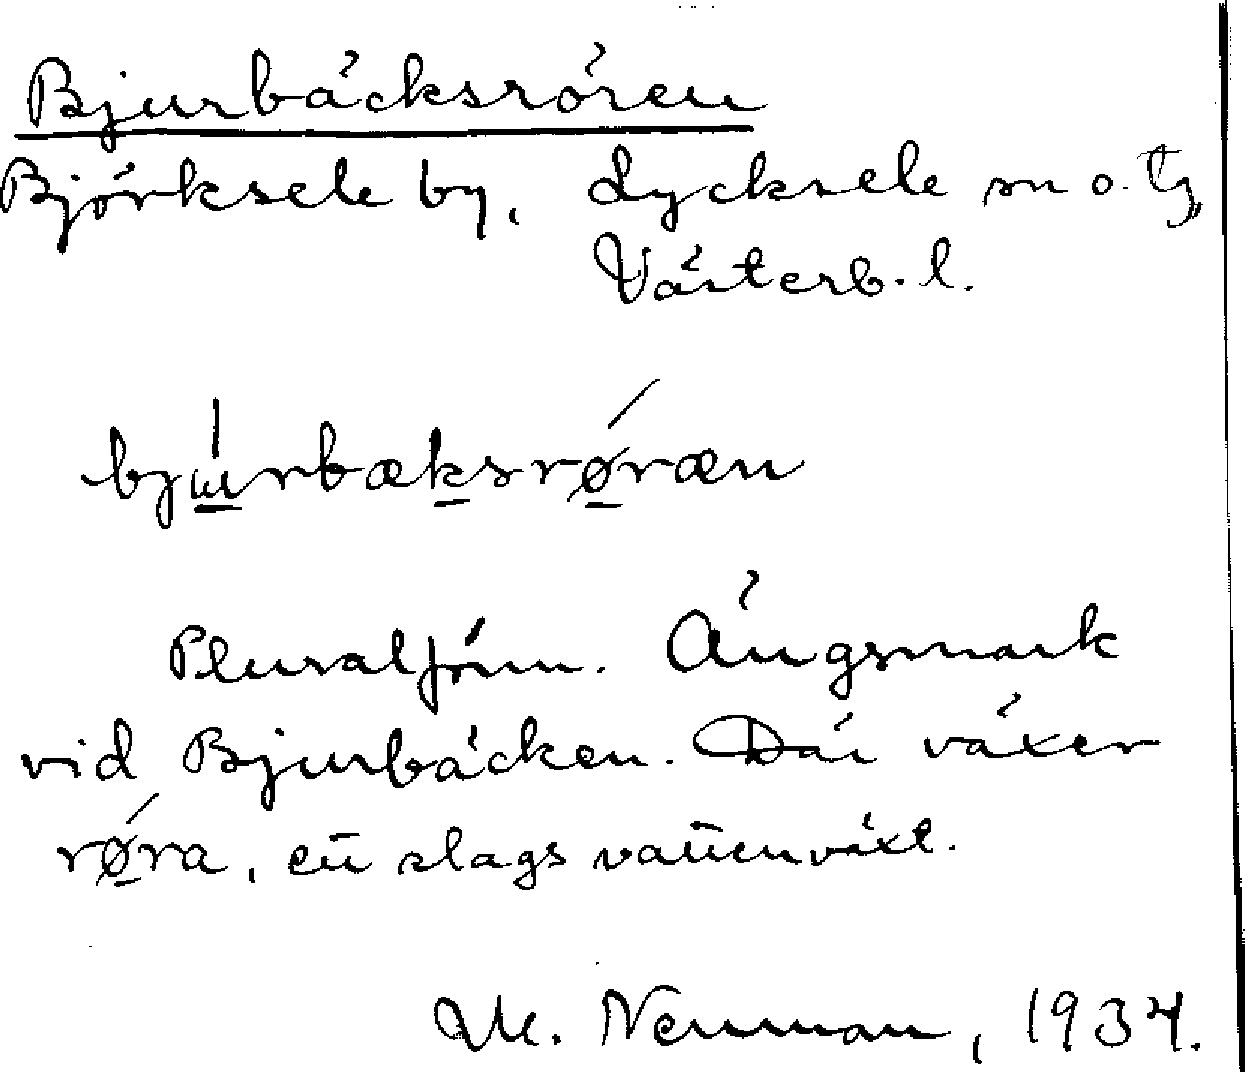 Bjurbäcksrören
Björksele by, Lycksele sn o. tg,
Västerb. l.
bjúrbæksrøræn
Pluralform. Ängsmark
vid Bjurbäcken. Där växer
røra, ett slags vattenväxt.
M. Nenuman, 1934.